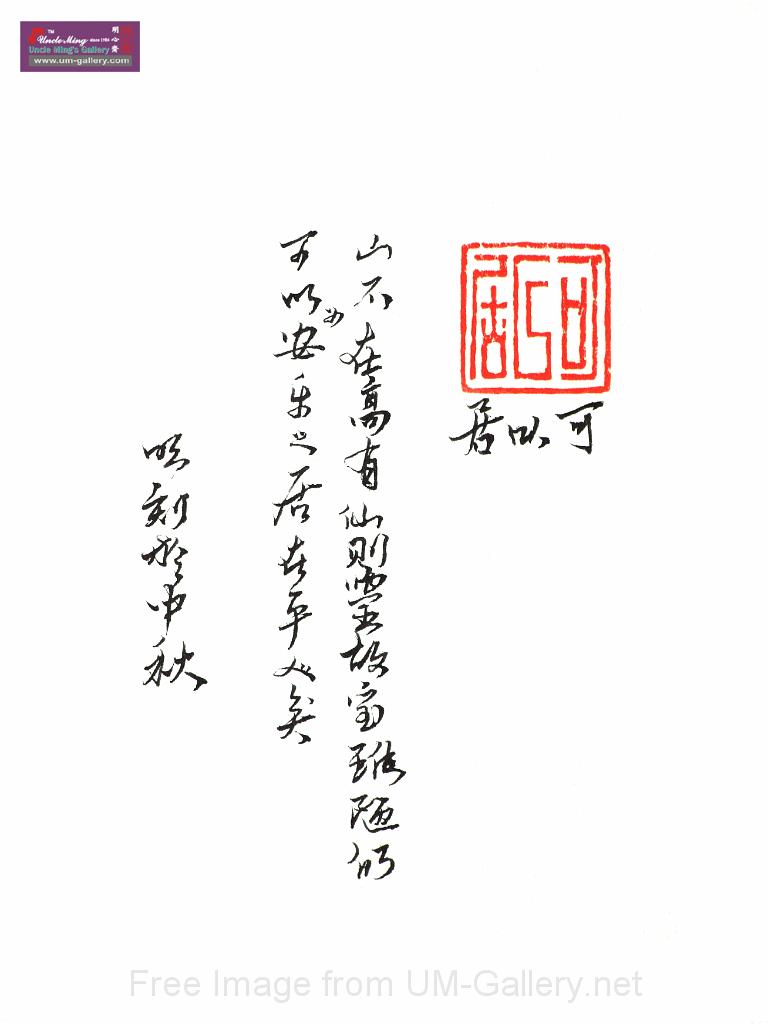 Uncle Ming
明心齋
Uncle Ming's Gallery
www.um-gallery.com
可以居
可以居
山不在高有仙則靈故室雖陋仍
可以安樂之居在乎心矣
明刻於中秋
Free Image from UM-Gallery.net